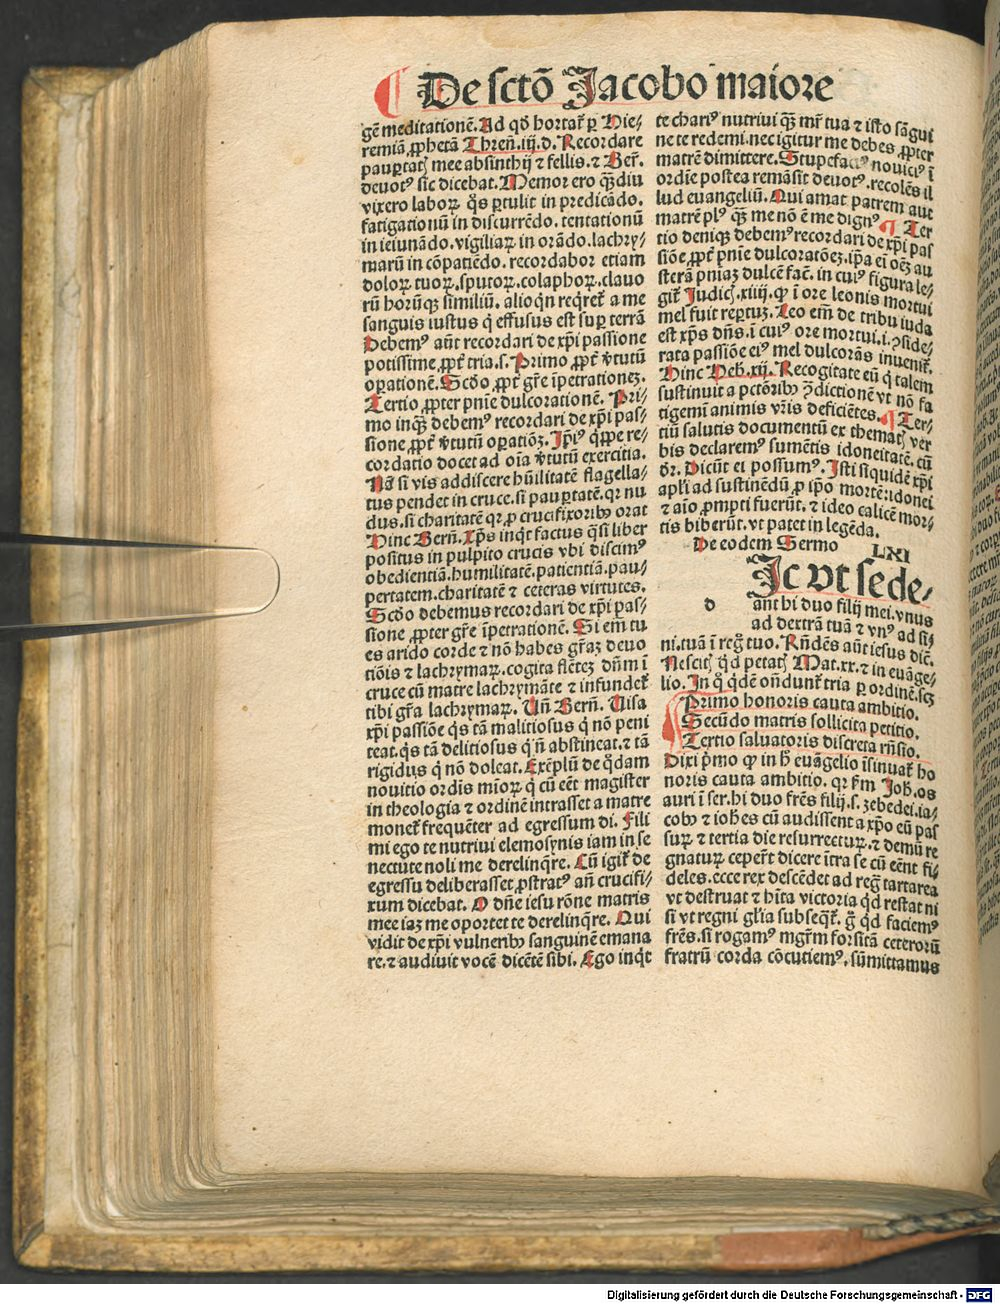 ¶ De sctō Jacobo maiore
gē meditationē. Ad qđ hortat̃ ꝑ Hie⸗
remiā ꝓphetā Thren̄.iij.d. Recordare
pauꝑtatꝭ mee absinthij ⁊ fellis. ⁊ Ber̄.
deuotꝰ sic dicebat. Memor ero qͣ̄diu
vixero laboꝝ q̄s ꝑtulit in predicādo.
fatigationū in discurrēdo. tentationū
in ieiunādo. vigiliaꝝ in orādo. lachry⸗
marū in cōpatiēdo. recordabor etiam
doloꝝ tuoꝝ. sputoꝝ. colaphoꝝ. clauo
rū horūqꝫ similiū. alioqn̄ reqret̃ a me
sanguis iustus q̇ effusus est suꝑ terrā
Debemꝰ aūt recordari de xp̄i passione
potissime ꝓpt̃ tria.s. Primo ꝓpt̃ v̓tutū
oꝑationē. Scđo ꝓpt̃ gr̄e īpetrationeꝫ.
Tertio ꝓpter pn̄ie dulcorationē. Pri⸗
mo inqͣꝫ debemꝰ recordari de xp̄i pas⸗
sione ꝓpt̃ v̓tutū oꝑationꝫ. Ip̄iꝰ q̇ppe re⸗
cordatio docet ad oīa v̓tutū exercitia.
Nā si vis addiscere hūilitatē flagella⸗
tus pendet in cruce. si pauꝑtatē. qꝛ nu
dus. si charitatē qꝛ ꝓ crucifixoribꝰ orat
Hinc Bern̄. Xp̄s inqͭ factus q̄si liber
positus in pulpito crucis vbi discimꝰ
obedientiā. humilitatē. patientiā. pau⸗
pertatem. charitatē ⁊ ceteras virtutes.
Scđo debemus recordari de xp̄i pas⸗
sione ꝓpter gr̄e īpetrationē. Si em̄ tu
es arido corde ⁊ nō habes gr̄aꝫ deuo
tiōis ⁊ lachrymaꝝ. cogita flēteꝫ dn̄m ī
cruce cū matre lachrymāte ⁊ infundet̃
tibi gr̄a lachrymaꝝ. Vn̄ Bern̄. Visa
xp̄i passiōe q̇s tā malitiosus q̇ nō peni
teat. q̇s tā delitiosus q̇ n̄ abstineat. ⁊ tā
rigidus q̇ nō doleat. Exēplū de q̇dam
nouitio ordīs mīoꝝ q̇ cū eēt magister
in theologia ⁊ ordinē intrasset a matre
monet̃ frequēter ad egressum di. Fili
mi ego te nutriui elemosynis iam in se
nectute noli me derelinq̄re. Cū igit̃ de
egressu deliberasset ꝓstratꝰ an̄ crucifi⸗
xum dicebat. O dn̄e iesu rōne matris
mee iaꝫ me oportet te derelinq̄re. Qui
vidit de xp̄i vulneribꝰ sanguinē emana
re. ⁊ audiuit vocē dicētē sibi. Ego inqͭ
te chariꝰ nutriui qͣꝫ mr̄ tua ⁊ isto sāgui
ne te redemi. nec igitur me debes ꝓpter
matrē dimittere. Stupefactꝰ nouiciꝰ ī
ordīe postea remāsit deuotꝰ. recolēs il
lud euangeliū. Qui amat patrem aut
matrē plꝰ qͣꝫ me nō ē me dignꝰ ¶ Ter
tio deniqꝫ debemꝰ recordari de xp̄i pas
siōe ꝓpt̃ pn̄ie dulcoratōeꝫ. ip̄a em̄ oēꝫ au
sterā pn̄iaꝫ dulcē fac̄. in cuiꝰ figura le⸗
git̃ Judicꝭ.xiiij. ꝙ ī ore leonis mortui
mel fuit reꝑtuꝫ. Leo em̄ de tribu iuda
est xp̄s dn̄s. ī cuiꝰ ore mortui.i. ꝯside⸗
rata passiōe eiꝰ mel dulcorās inuenit̃.
Hinc Heb.xij. Recogitate eū q̇ talem
sustinuit a pctōribꝰ ꝯ̄dictionē vt nō fa
tigemī animis vr̄is deficiētes. ¶ Ter⸗
tiū salutis documentū ex thematꝭ ver
bis declaremꝰ sumētis idoneitatē. cū
dr̄. Dicūt ei possumꝰ. Isti siquidē xp̄i
apl̄i ad sustinēdū ꝓ ip̄o mortē: idonei
⁊ aīo ꝓmpti fuerūt. ⁊ ideo calicē mor⸗
tis biberūt. vt patet in legēda.
De eodem Sermo LXI
d Ic vt sede⸗
ant hi duo filij mei. vnus
ad dextrā tuā ⁊ vnꝰ ad si⸗
ni. tuā ī reg̃ tuo. Rn̄dēs aūt iesus dic̄.
Nescitꝭ qͥd petatꝭ Mat.xx. ⁊ in euāge⸗
lio. In q̊ qͥdē on̄dunt̃ tria ꝑ ordinē. scꝫ
Primo honoris cauta ambitio.
Secūdo matris sollicita petitio.
Tertio saluatoris discreta rn̄sio.
Dixi p̄mo ꝙ in h̊ euāgelio īsinuat̃ ho
noris cauta ambitio. qꝛ fm̄ Joh. os
auri ī ser. hi duo frēs filij.s. zebedei. ia⸗
cobꝰ ⁊ ioh̄es cū audissent a xp̄o eū pas
suꝝ ⁊ tertia die resurrectuꝝ. ⁊ demū re
gnatuꝝ ceper̄t dicere ītra se cū eēnt fi⸗
deles. ecce rex descēdet ad reg̃ tartarea
vt destruat ⁊ hīta victoria qͥd restat ni
si vt regni gl̄ia subseq̄t̃. g̊ qͥd faciemꝰ
frēs. si rogamꝰ mgr̄m forsitā ceterorū
fratrū corda cōcutiemꝰ. sūmittamus
Digitalisierung gefördert durch die Deutsche Forschungsgemeinschaft - DFG